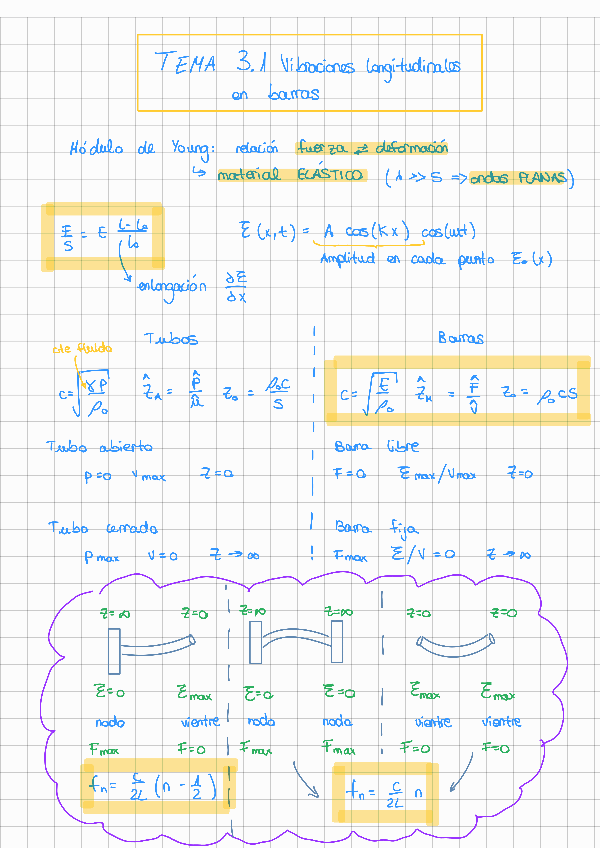 TEMA 3.1 Vibraciones longitudinales
en barras
Módulo de Young: relación fuerza ⇄ deformación
↳ material ELÁSTICO (λ >> S => ondas PLANAS)
F/S = E (L-L₀)/L₀
ξ(x,t) = A cos(kx) cos(ωt)
Amplitud en cada punto ξ₀(x)
enlongación ∂ξ/∂x
Tubos
cte fluido
c = √(γP/ρ₀) Ẑ_A = p̂/û Z₀ = ρ₀c/S
Tubo abierto
p=0 V max Z=0
Tubo cerrado
P max V=0 Z → ∞
Barras
c = √(E/ρ₀) Ẑ_M = F̂/v̂ Z₀ = ρ₀cS
Barra libre
F=0 ξmax/Vmax Z=0
Barra fija
Fmax ξ/V=0 Z → ∞
Z=∞ Z=0 Z=∞ Z=∞ Z=0 Z=0
ξ=0 ξmax ξ=0 ξ=0 ξmax ξmax
nodo vientre nodo nodo vientre vientre
Fmax F=0 Fmax Fmax F=0 F=0
fn = c/2L (n - 1/2)
fn = c/2L n